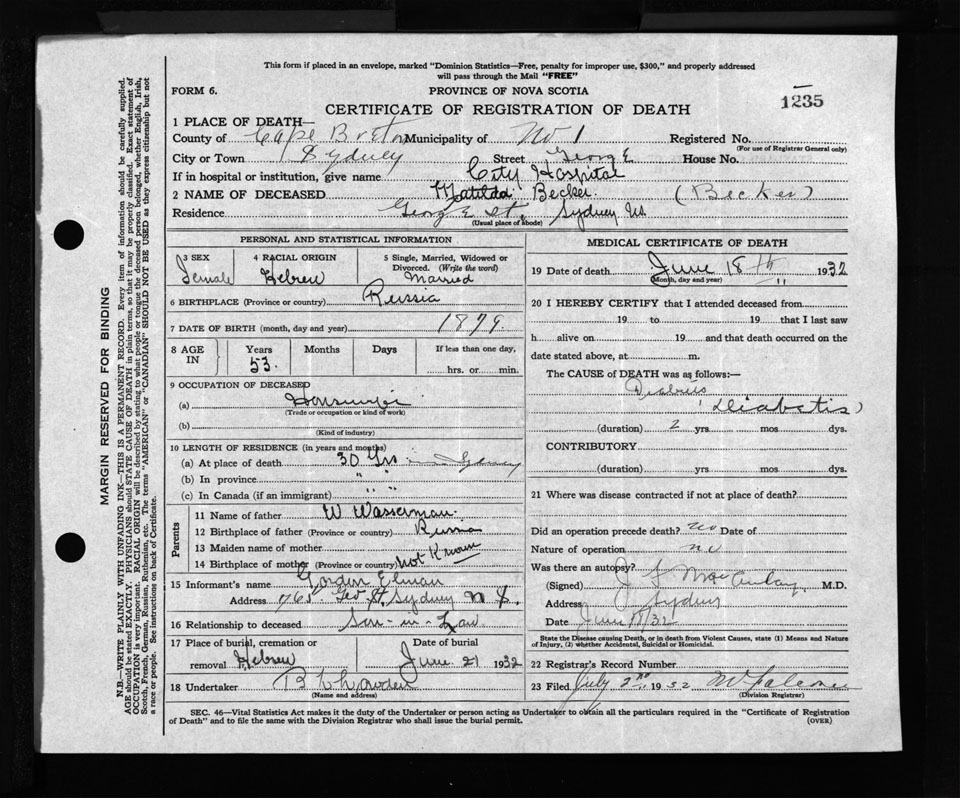 This form if placed in an envelope, marked "Dominion Statistics—Free, penalty for improper use, $300," and properly addressed
will pass through the Mail "FREE"
FORM 6.
PROVINCE OF NOVA SCOTIA
1235
CERTIFICATE OF REGISTRATION OF DEATH
1 PLACE OF DEATH—
County of Cape Breton Municipality of No. 1 Registered No.
(For use of Registrar General only)
City or Town Sydney Street George House No.
If in hospital or institution, give name City Hospital
2 NAME OF DECEASED Matilda Becker (Becker)
Residence George St. Sydney N.S.
(Usual place of abode)
PERSONAL AND STATISTICAL INFORMATION
3 SEX Female
4 RACIAL ORIGIN Hebrew
5 Single, Married, Widowed or Divorced. (Write the word) Married
6 BIRTHPLACE (Province or country) Russia
7 DATE OF BIRTH (month, day and year) 1879.
8 AGE IN Years Months Days If less than one day,
53. hrs. or min.
9 OCCUPATION OF DECEASED
(a) Housewife
(Trade or occupation or kind of work)
(b)
(Kind of industry)
10 LENGTH OF RESIDENCE (in years and months)
(a) At place of death 30 Yrs. Sydney
(b) In province " "
(c) In Canada (if an immigrant) " "
Parents
11 Name of father W Wasserman
12 Birthplace of father (Province or country) Russia
13 Maiden name of mother
14 Birthplace of mother (Province or country) Not Known
15 Informant's name Gordon Elman
Address 765 Geo St, Sydney N S.
16 Relationship to deceased Son-in-Law
17 Place of burial, cremation or removal Hebrew
Date of burial June 21 1932
18 Undertaker
(Name and address)
MEDICAL CERTIFICATE OF DEATH
19 Date of death June 18th 1932
(Month, day and year)
20 I HEREBY CERTIFY that I attended deceased from
19 to 19 that I last saw
h alive on 19 and that death occurred on the
date stated above, at m.
The CAUSE of DEATH was as follows:—
Diabetes
(Diabetis)
(duration) 2 yrs. mos. dys.
CONTRIBUTORY
(duration) yrs. mos. dys.
21 Where was disease contracted if not at place of death?
Did an operation precede death? No Date of
Nature of operation no
Was there an autopsy?
(Signed) MacAulay M.D.
Address Sydney
Date June 18/32
State the Disease causing Death, or in death from Violent Causes, state (1) Means and Nature of Injury, (2) whether Accidental, Suicidal or Homicidal.
22 Registrar's Record Number
23 Filed July 2nd 1932
(Division Registrar)
SEC. 46—Vital Statistics Act makes it the duty of the Undertaker or person acting as Undertaker to obtain all the particulars required in the "Certificate of Registration
of Death" and to file the same with the Division Registrar who shall issue the burial permit.
(OVER)
MARGIN RESERVED FOR BINDING
N.B.—WRITE PLAINLY WITH UNFADING INK—THIS IS A PERMANENT RECORD. Every item of information should be carefully supplied.
AGE should be stated EXACTLY. PHYSICIANS should STATE CAUSE OF DEATH in plain terms, so that it may be properly classified. Exact statement of
OCCUPATION is very important. RACIAL ORIGIN will be described by stating to what people or tongue the deceased person belonged, whether English, Irish,
Scotch, French, German, Russian, Ruthenian, etc. The terms "AMERICAN" or "CANADIAN" SHOULD NOT BE USED as they express citizenship but not
a race or people. See instructions on back of Certificate.